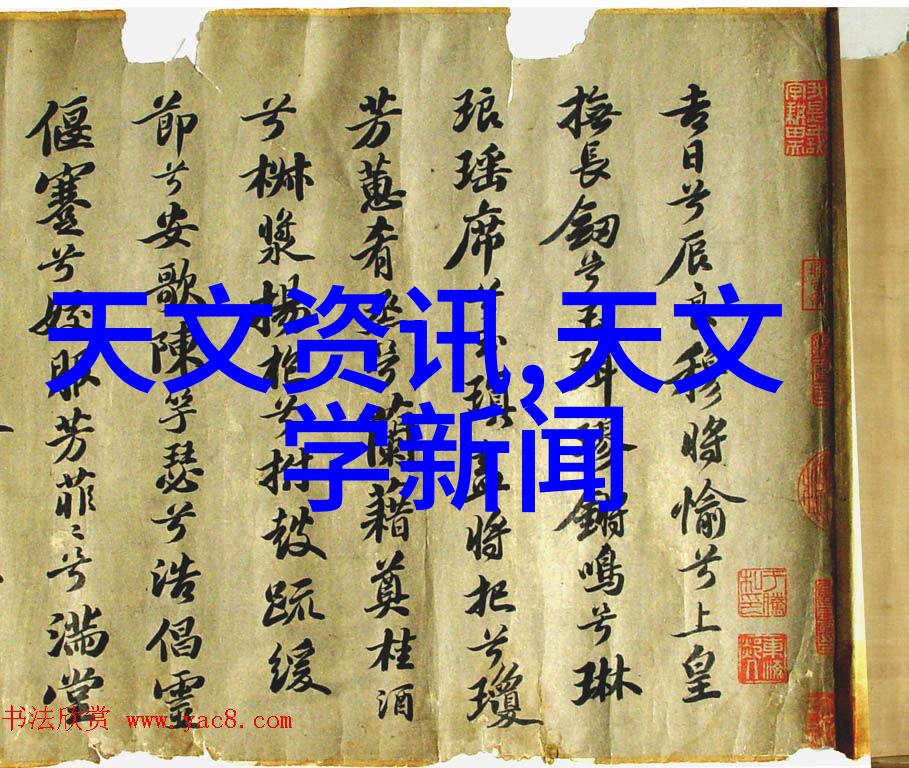 吉日兮辰良穆將愉兮上皇
撫長劒兮玉珥璆鏘鳴兮琳
琅瑶席兮玉瑱盍將把兮瓊
芳蕙肴烝兮蘭藉奠桂酒
兮椒漿揚枹兮拊鼓疏緩
節兮安歌陳竽瑟兮浩倡靈
偃蹇兮姣服芳菲々兮滿堂
天文资讯,天文
学新闻
书法欣赏 www.yac8.com